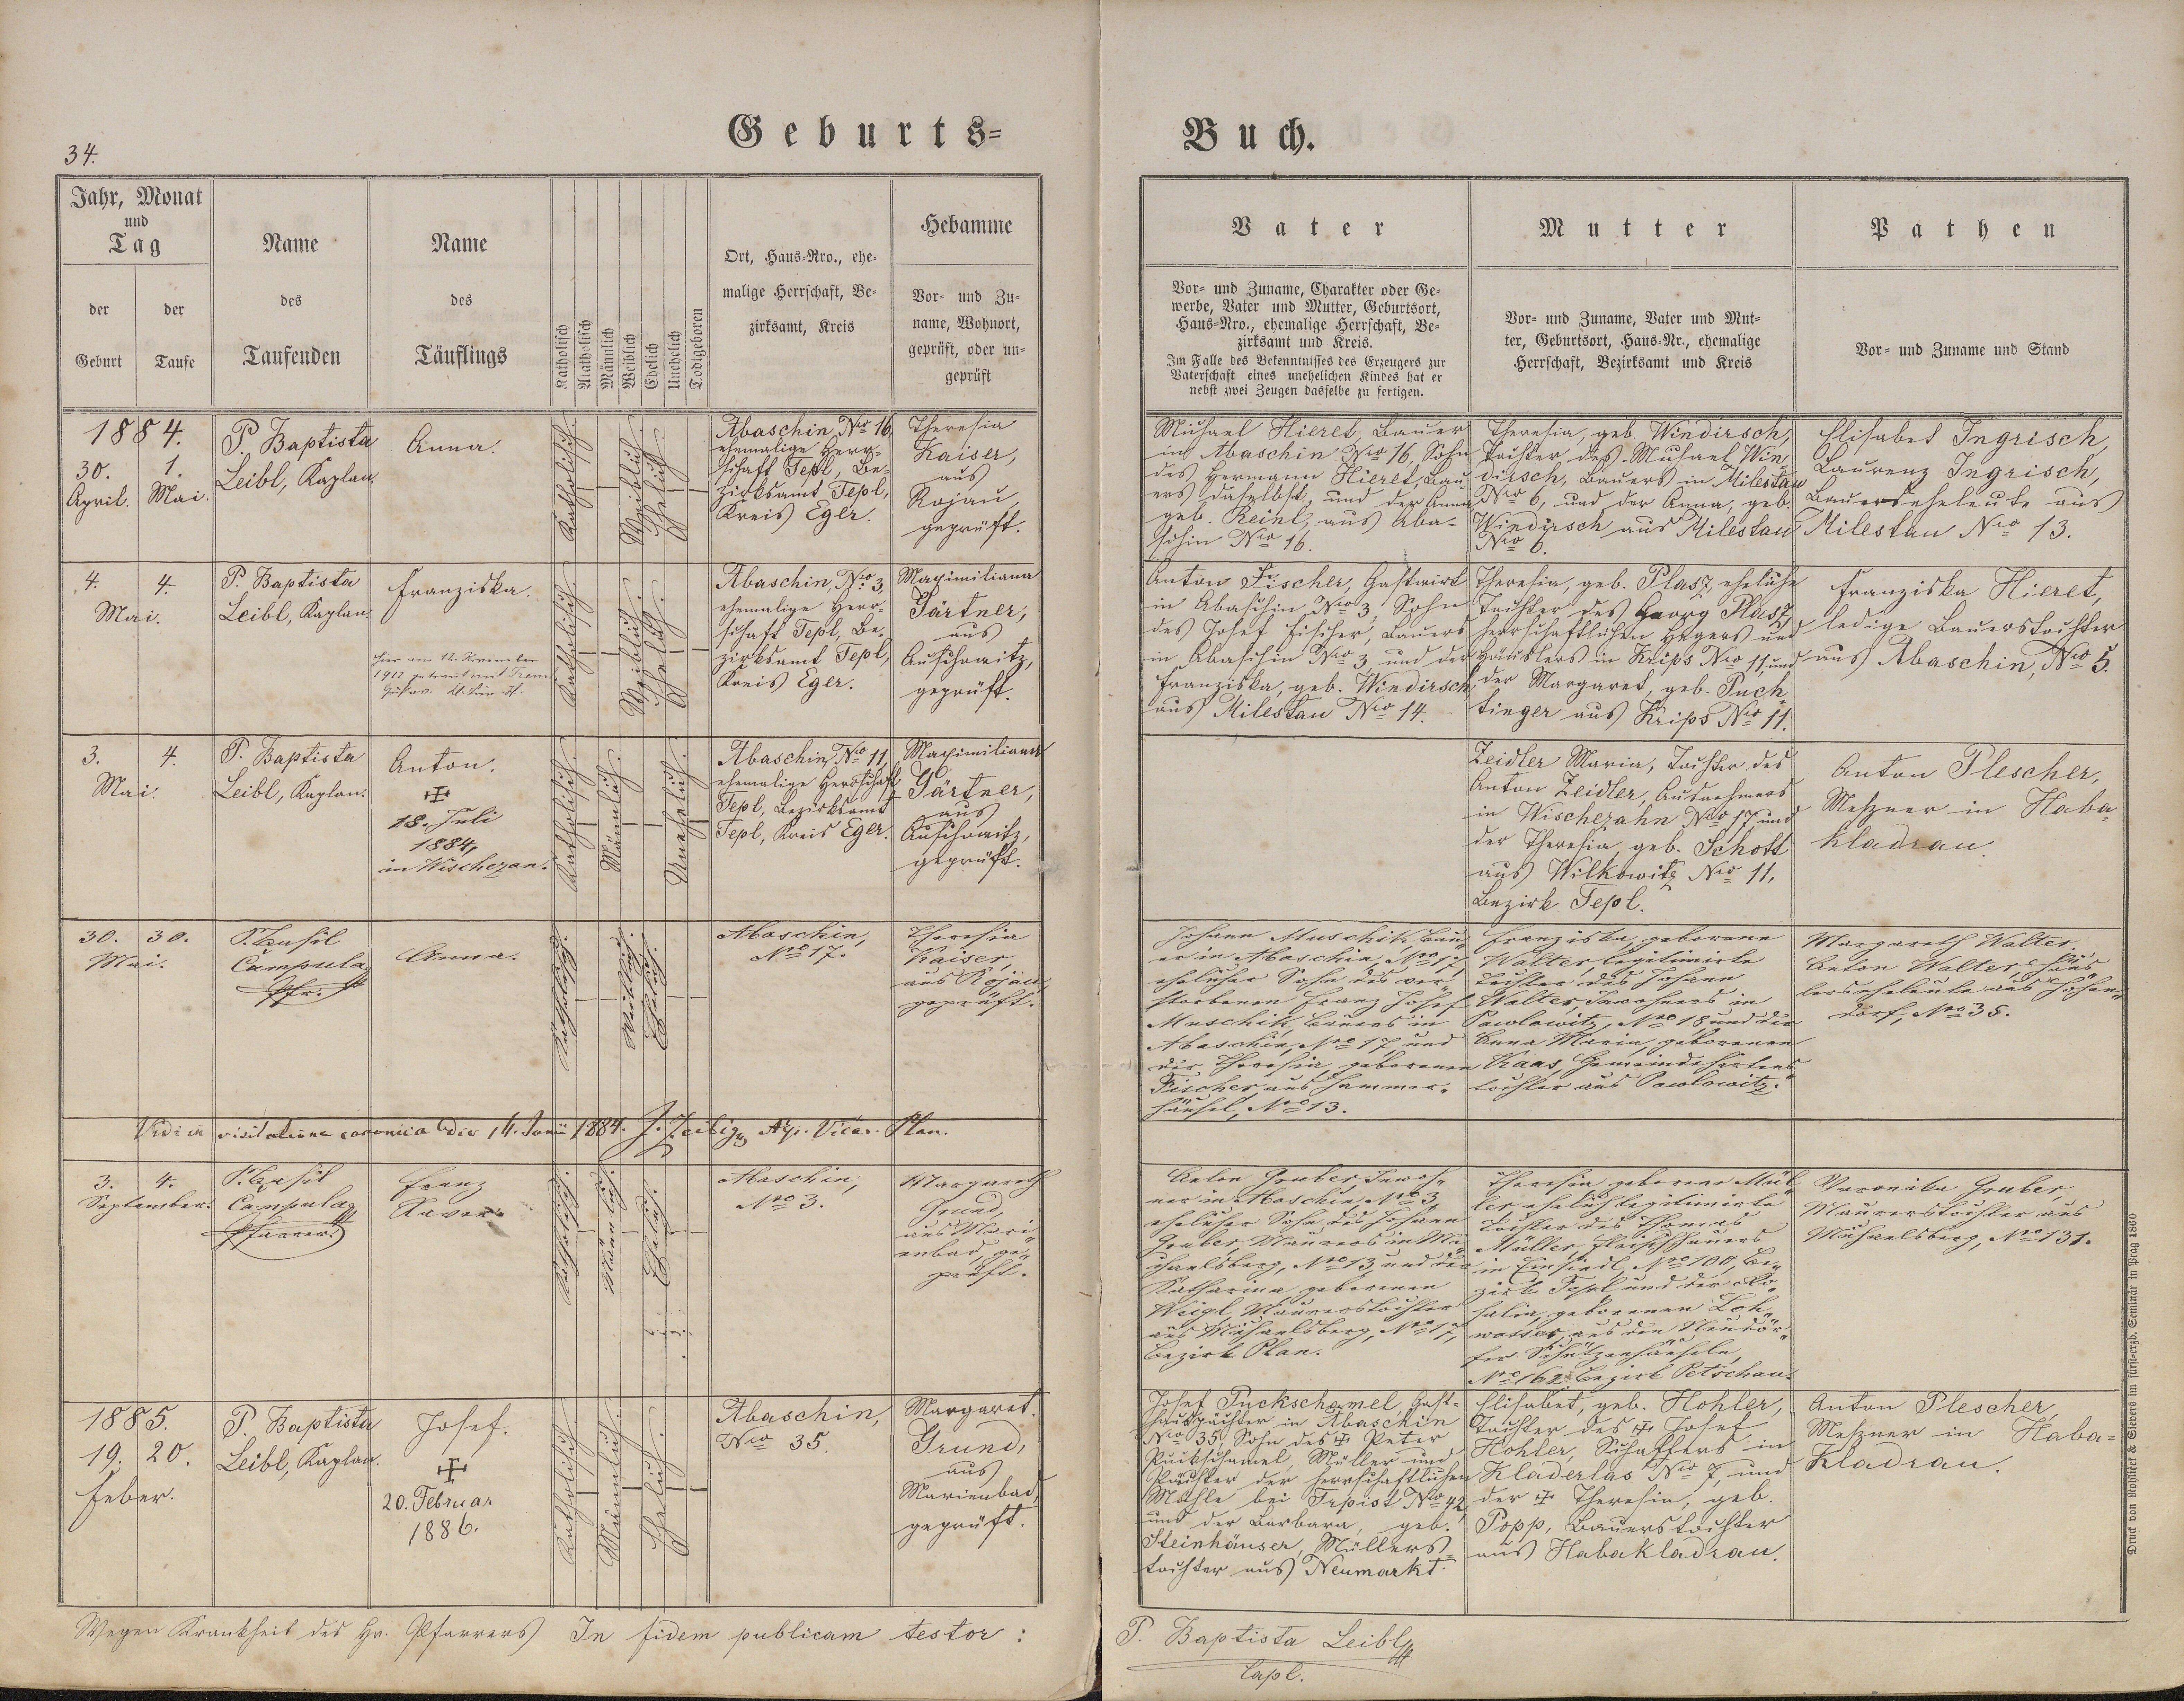 34.
Geburts=
Buch.
Jahr, Monat
und
Tag
der
Geburt
der
Taufe
Name
des
Taufenden
Name
des
Täuflings
Katholisch
Akatholisch
Männlich
Weiblich
Ehelich
Unehelich
Todtgeboren
Ort, Haus=Nro., ehe=
malige Herrschaft, Be=
zirksamt, Kreis
Hebamme
Vor= und Zu=
name, Wohnort,
geprüft, oder un=
geprüft
Vater
Vor= und Zuname, Charakter oder Ge=
werbe, Vater und Mutter, Geburtsort,
Haus=Nro., ehemalige Herrschaft, Be=
zirksamt und Kreis.
Im Falle des Bekenntnisses des Erzeugers zur
Vaterschaft eines unehelichen Kindes hat er
nebst zwei Zeugen dasselbe zu fertigen.
Mutter
Vor= und Zuname, Vater und Mut=
ter, Geburtsort, Haus=Nr., ehemalige
Herrschaft, Bezirksamt und Kreis
Pathen
Vor= und Zuname und Stand
1884.
30. 1.
April. Mai.
P. Baptista
Leibl, Kaplan.
Anna.
Katholisch.
Weiblich.
Ehelich.
Abaschin, Nro 16,
ehemalige Herr=
schaft Tepl, Be=
zirksamt Tepl,
Kreis Eger.
Theresia
Kaiser,
aus
Rojau
geprüft.
Michael Hieret, Bauer
in Abaschin Nro 16, Sohn
des Hermann Hieret, Bau=
ers daselbst, und der Anna
geb. Reinl, aus Aba=
schin Nro 16.
Theresia, geb. Windirsch,
Tochter des Michael Win=
dirsch, Bauers in Milestau
Nro 6, und der Anna, geb.
Windirsch aus Milestau
Nro 6.
Elisabet Ingrisch,
Laurenz Ingrisch,
Bauerseheleute aus
Milestau Nro 13.
4. 4.
Mai.
P. Baptista
Leibl, Kaplan.
Franziska.
hier am 12. November
1912 getraut mit
Katholisch.
Weiblich.
Ehelich.
Abaschin, Nro 3,
ehemalige Herr=
schaft Tepl, Be=
zirksamt Tepl,
Kreis Eger.
Maximiliana
Gärtner,
aus
Auschowitz,
geprüft.
Anton Fischer, Gastwirt
in Abaschin Nro 3, Sohn
des Josef Fischer, Bauers
in Abaschin Nro 3 und der
Franziska, geb. Windirsch
aus Milestau Nro 14.
Theresia, geb. Plasz, eheliche
Tochter des Georg Plasz,
herrschaftlichen Hegers und
Häuslers in Krips Nro 11, und
der Margaret, geb. Puch=
tinger aus Krips Nro 11.
Franziska Hieret,
ledige Bauerstochter
aus Abaschin, Nro 5.
3. 4.
Mai.
P. Baptista
Leibl, Kaplan.
Anton.
✠
18. Juli
1884,
in Wischezan.
Katholisch.
Männlich.
Unehelich.
Abaschin, Nro 11,
ehemalige Herrschaft
Tepl, Bezirksamt
Tepl, Kreis Eger.
Maximiliana
Gärtner,
aus
Auschowitz,
geprüft.
Zeidler Maria, Tochter des
Anton Zeidler, Ausnehmers
in Wischezahn Nro 17, und
der Theresia, geb. Schott
aus Wilkowitz Nro 11,
Bezirk Tepl.
Anton Plescher,
Meßner in Haba=
kladrau.
30. 30.
Mai.
P. Basil
Campula
Pfr.
Anna.
Katholisch.
Weiblich.
Ehelich.
Abaschin,
Nro 17.
Theresia
Kaiser,
aus Rojau,
geprüft.
Johann Muschik, Bau=
er in Abaschin, Nro 17,
ehelicher Sohn des ver=
storbenen Franz Josef
Muschik, Bauers in
Abaschin, Nro 17, und
der Theresia, geborenen
Fischer aus Hammer=
häusel, Nro 13.
Franziska, geborene
Walter, legitimirte
Tochter des Johann
Walter, Inwohners in
Pawlowitz, Nro 18 und der
Anna Maria, geborenen
Haas, Gemeindehirtens=
tochter aus Pawlowitz.
Margareth Walter,
Anton Walter, Häus=
lerseheleute aus Johan=
dorf, Nro 35.
Vidi in visitatione canonica die 14. Junii 1884.
Vicar. Plan.
3. 4.
September.
P. Basil
Campula
Pfarrer.
Franz
Xaver.
Katholisch.
Männlich.
Ehelich.
Abaschin,
Nro 3.
Margareth
Grund,
aus Mari=
enbad, ge=
prüft.
Anton Gruber, Inwoh=
ner in Abaschin, Nro 3
ehelicher Sohn des Johann
Gruber, Maurers in Mi=
chaelsberg, Nro 13 und der
Katharina, geborenen
Weigl, Maurerstochter
aus Michaelsberg, Nro 17,
Bezirk Plan.
Theresia geborene Mül=
ler, ehelich legitimirte
Tochter des Thomas
Müller, Fleischhauers
in Einsiedl, Nro 100, Be=
zirk Tepl und der Ro=
salia, geborenen Loh=
wasser, aus den Neudör=
fer Schützenhäuseln,
Nro 162 Bezirk Petschau.
Veronika Gruber,
Maurerstochter aus
Michaelsberg, Nro 131.
1885.
19. 20.
Feber.
P. Baptista
Leibl, Kaplan.
Josef.
✠
20. Februar
1886.
Katholisch.
Männlich.
Ehelich.
Abaschin,
Nro 35.
Margaret.
Grund,
aus
Marienbad,
geprüft.
Josef Puckschamel, Gast=
hauspächter in Abaschin
Nro 35, Sohn des ✠ Peter
Puckschamel, Müller und
Pächter der herrschaftlichen
Mühle bei Trpist Nro 42,
und der Barbara, geb.
Steinhäuser, Müllers=
tochter aus Neumarkt.
Elisabet, geb. Hohler,
Tochter des ✠ Josef
Hohler, Schaffers in
Kladerlas Nro 7, und
der ✠ Theresia, geb.
Popp, Bauerstochter
aus Habakladrau.
Anton Plescher,
Meßner in Haba=
kladrau.
Wegen Krankheit des Hr. Pfarrers In fidem publicam testor:
P. Baptista Leibl
Capl.
Druck von Rohliček & Sievers im fürst=erzb. Seminar in Prag 1860